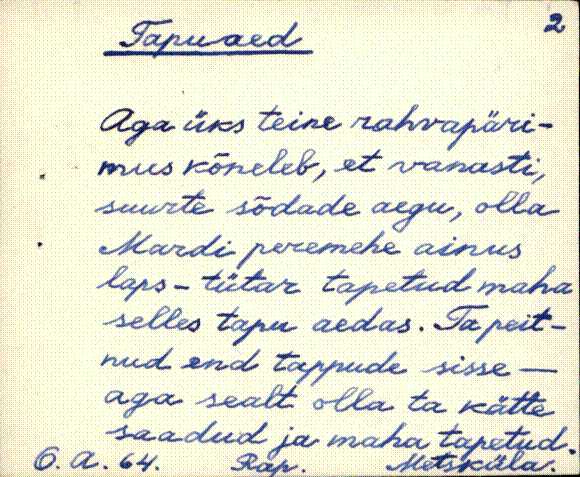 2
Tapuaed
Aga üks teine rahvapäri-
mus kõneleb, et vanasti,
suurte sõdade aegu, olla
Mardi peremehe ainus
laps - tütar tapetud maha
selles tapu aedas. Ta peit-
nud end tappude sisse —
aga sealt olla ta kätte
saadud ja maha tapetud.
O. A. 64. Rap. Metsküla.